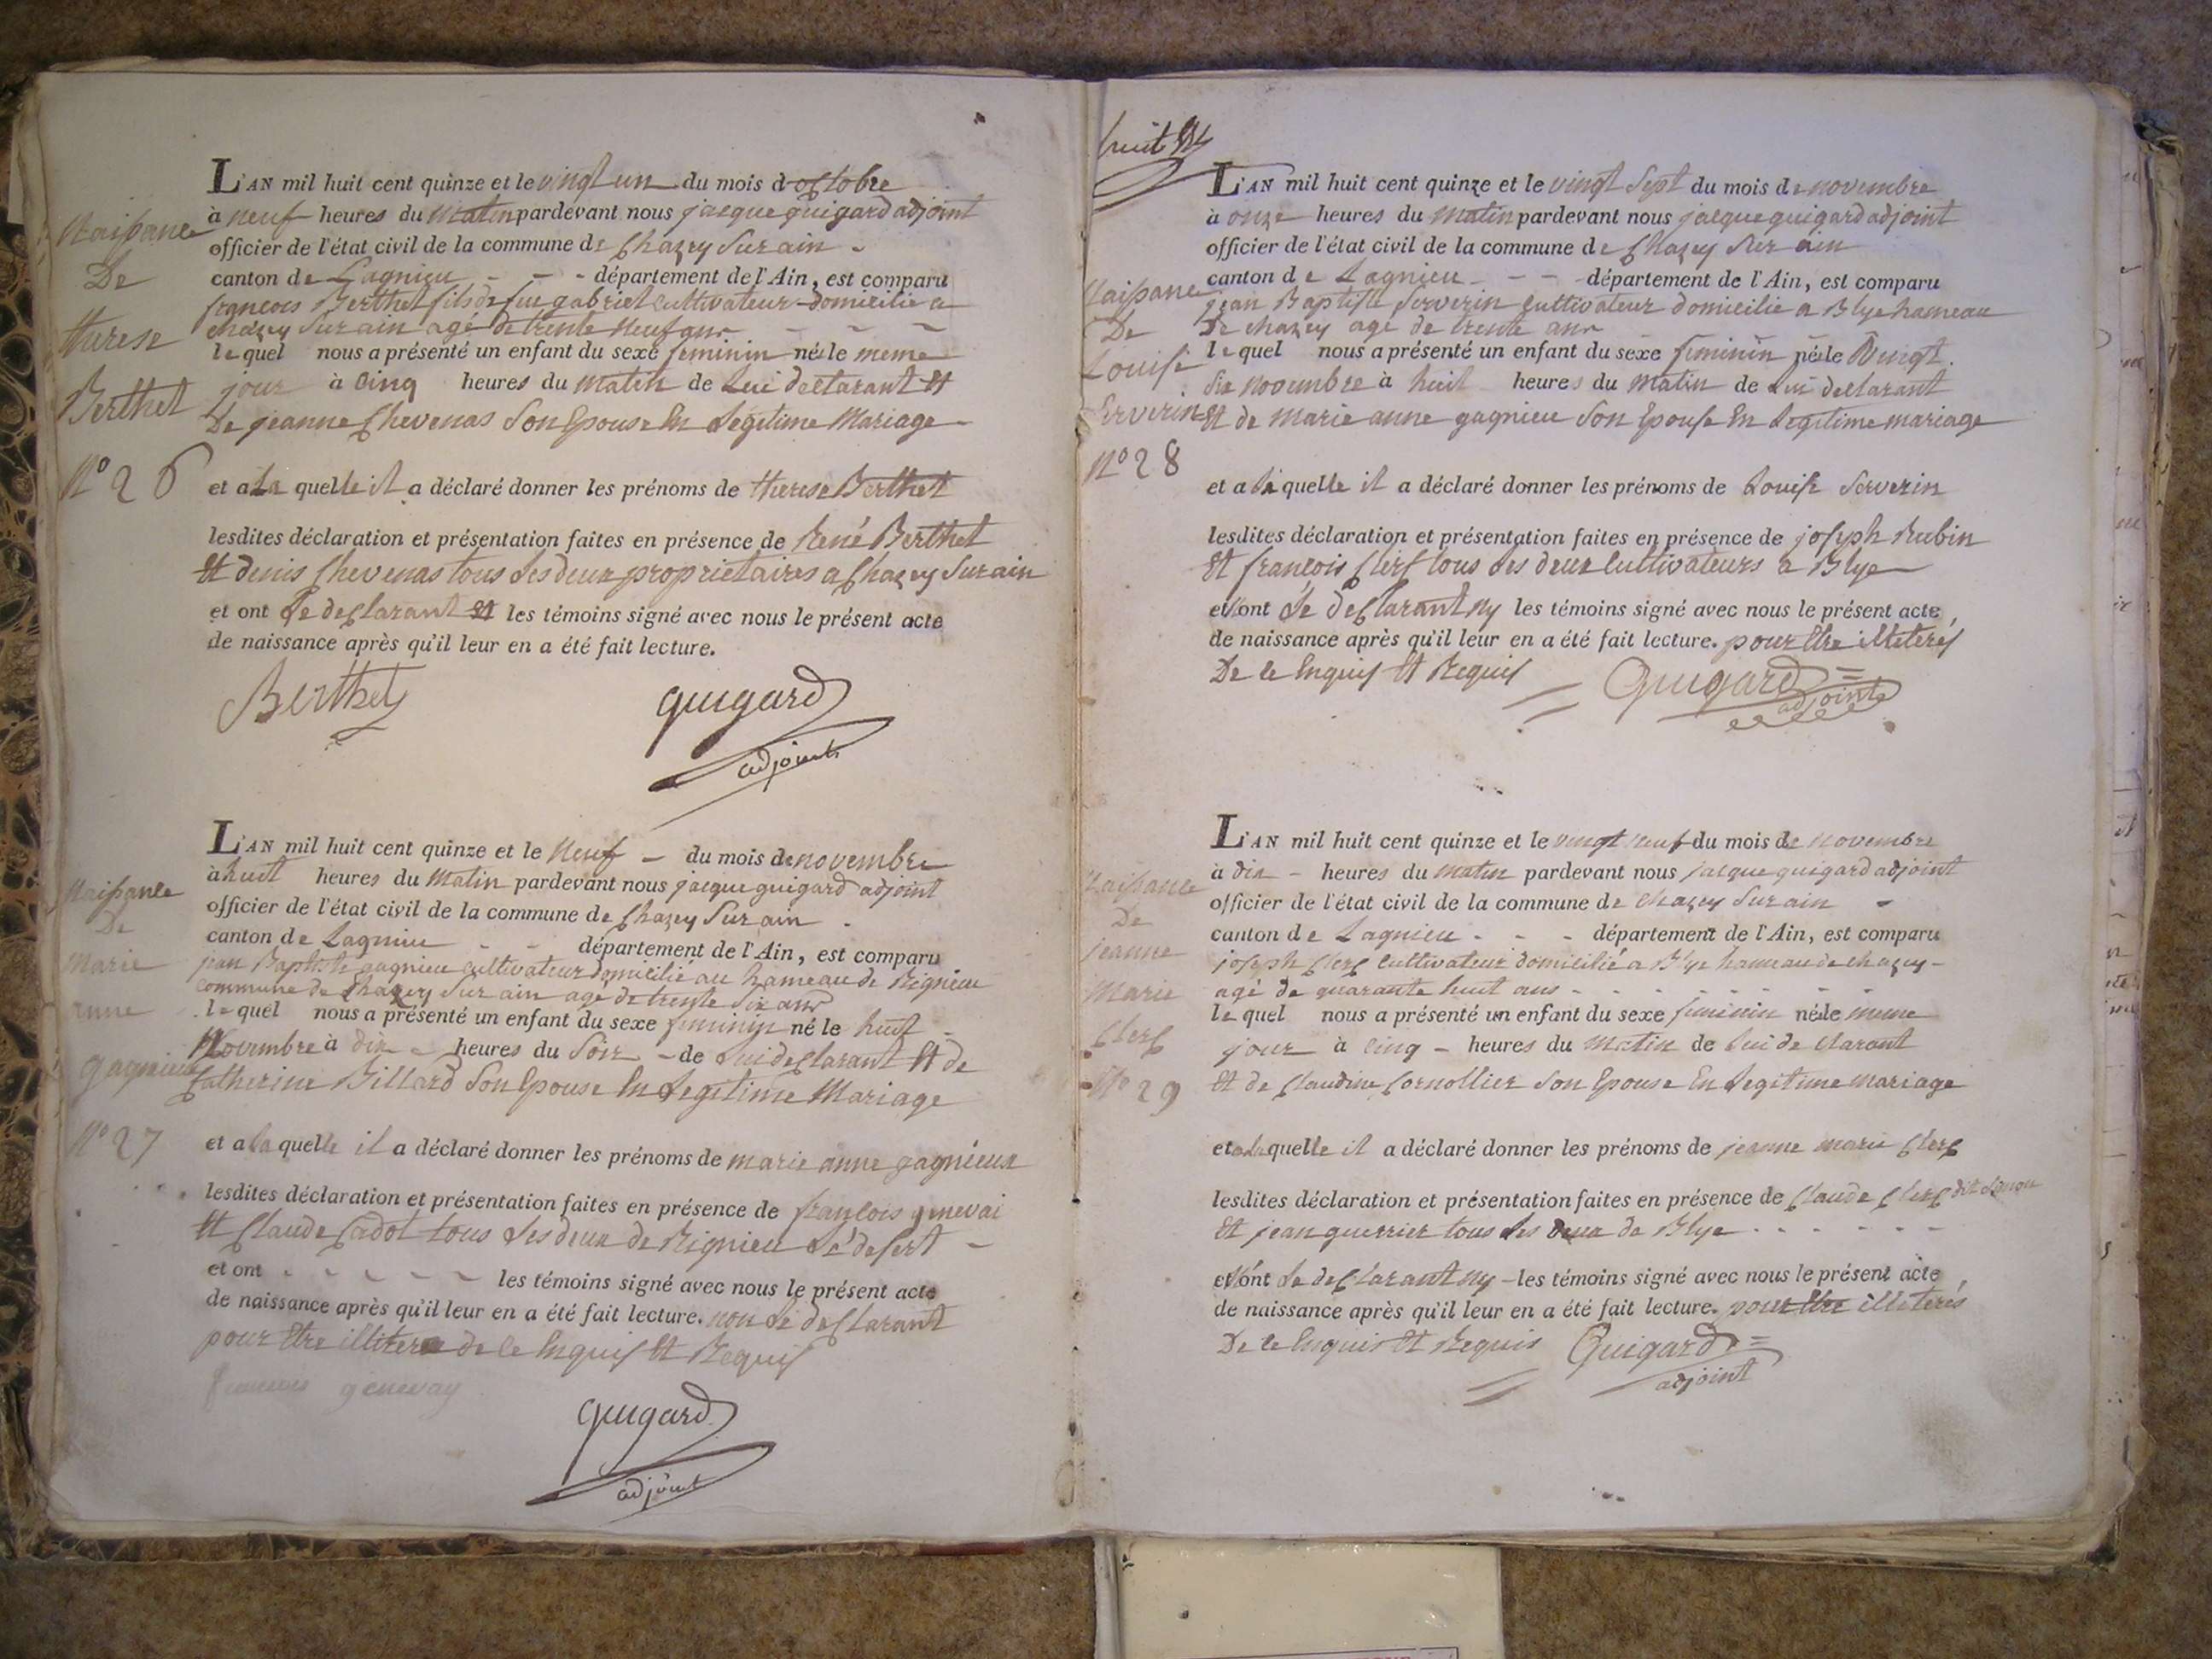 L'AN mil huit cent quinze et le vingt un du mois d'octobre
à neuf heures du matin pardevant nous jacque guigard adjoint
officier de l'état civil de la commune de Chazey Sur ain
canton de Lagnieu - - - département de l'Ain, est comparu
francois Berthet fils de feu gabriel cultivateur domicilié a
chazey Sur ain agé de trente neuf ans - - -
lequel nous a présenté un enfant du sexe feminin née le meme
jour à cinq heures du matin de Lui declarant Et
De jeanne Chevenas Son Epouse En Légitime Mariage
Naissance
De
therese
Berthet
N° 26
et a La quelle il a déclaré donner les prénoms de therese Berthet
lesdites déclaration et présentation faites en présence de René Berthet
Et denis Chevenas tous Les deux proprietaires a Chazey Sur ain
et ont Le declarant Et les témoins signé avec nous le présent acte
de naissance après qu'il leur en a été fait lecture.
Berthet guigard
adjoint
L'AN mil huit cent quinze et le Neuf - du mois de novembre
à huit heures du Matin pardevant nous jacque guigard adjoint
officier de l'état civil de la commune de Chazey Sur ain
canton de Lagnieu - - département de l'Ain, est comparu
jean Baptiste gagnieu cultivateur domicilié au hameau de Rignieu
commune de Chazey Sur ain agé de trente Six ans
lequel nous a présenté un enfant du sexe feminin né le huit -
Novembre à dix - heures du Soir - de Lui declarant Et de
Catherine Billard Son Epouse En Legitime Mariage
Naissance
De
Marie
anne
gagnieu
N° 27
et a la quelle il a déclaré donner les prénoms de marie anne gagnieux
lesdites déclaration et présentation faites en présence de françois genevai
Et Claude Cadot tous Les deux de Rignieu Le desert -
et ont - - - - - les témoins signé avec nous le présent acte
de naissance après qu'il leur en a été fait lecture. non Le declarant
pour Etre illitere de ce Enquis Et Requis
francois genevay
guigard
adjoint
huit
L'AN mil huit cent quinze et le vingt Sept du mois de novembre
à onze heures du Matin pardevant nous jacque guigard adjoint
officier de l'état civil de la commune de Chazey Sur ain
canton de Lagnieu - - - département de l'Ain, est comparu
jean Baptiste Serverin cultivateur domicilié a Blye hameau
De chazey agé de trente ans
lequel nous a présenté un enfant du sexe feminin née le vingt
Six novembre à huit heures du matin de Lui declarant
Et de marie anne gagnieu Son Epouse En Legitime mariage
Naissance
De
Louise
Serverin
N° 28
et a la quelle il a déclaré donner les prénoms de Louise Serverin
lesdites déclaration et présentation faites en présence de joseph Rubin
Et françois Clerc tous Les deux Cultivateurs a Blye
et n'ont Le declarant ny les témoins signé avec nous le présent acte,
de naissance après qu'il leur en a été fait lecture. pour Etre illiterés
De ce Enquis Et Requis
Guigard
adjoint
L'AN mil huit cent quinze et le vingt neuf du mois de novembre
à dix - heures du matin pardevant nous jacque guigard adjoint
officier de l'état civil de la commune de Chazey Sur ain -
canton de Lagnieu - - - département de l'Ain, est comparu
joseph Clerc cultivateur domicilié a Blye hameau de chazey -
agé de quarante huit ans - - - - - -
lequel nous a présenté un enfant du sexe feminin née le meme
jour à cinq - heures du matin de Lui declarant
Et de Claudine Cornollier Son Epouse En Legitime mariage
Naissance
De
jeanne
Marie
Clerc
N° 29
et a la quelle il a déclaré donner les prénoms de jeanne marie Clerc
lesdites déclaration et présentation faites en présence de Claude Clerc dit
Et jean guerrier tous Les deux de Blye - - - - - -
et n'ont Le declarant ny - les témoins signé avec nous le présent acte,
de naissance après qu'il leur en a été fait lecture. pour Etre illiterés
De ce Enquis Et Requis Guigard
adjoint